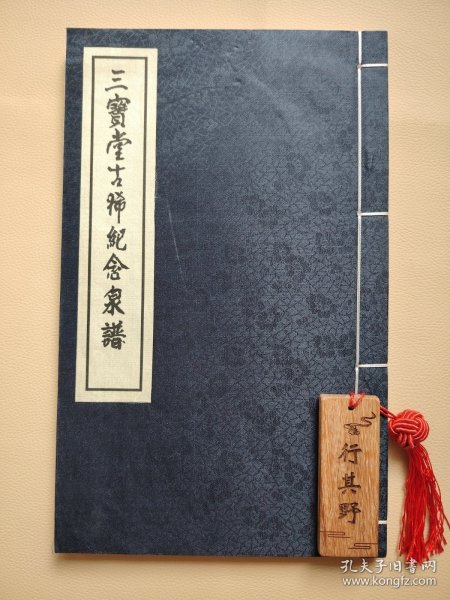 三寶堂古稀紀念泉譜
行其野
孔夫子旧书网
www.kongfz.com